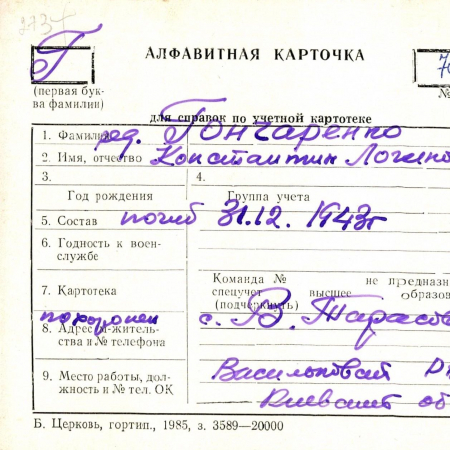 273т
Г
АЛФАВИТНАЯ КАРТОЧКА
(первая бук-
ва фамилии)
№
для справок по учетной картотеке
1. Фамилия ряд. Гончаренко
2. Имя, отчество Константин Логино
3. 4.
Год рождения Группа учета
5. Состав погиб 31.12. 1943г
6. Годность к воен-
службе
7. Картотека
Команда № не предназн
спецучет высшее образов
(подчеркнуть)
похоронен с. В. Тарасов
8. Адрес жительс-
тва и № телефона
9. Место работы, дол-
жность и № тел. ОК
Васильковский
Киевской об
Б. Церковь, гортип., 1985, з. 3589—20000